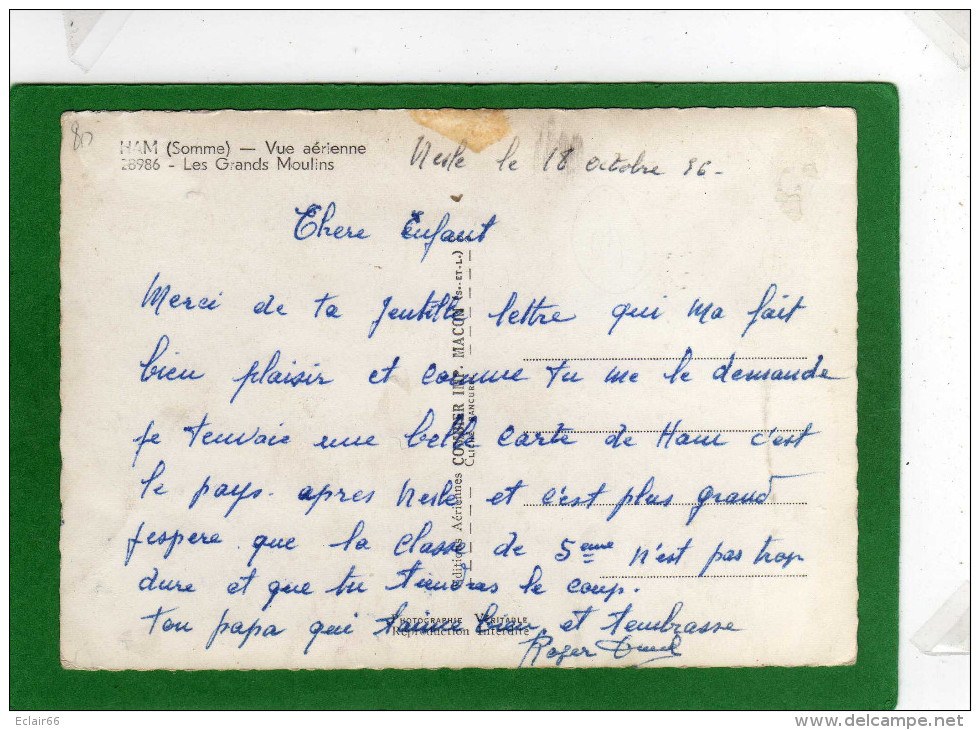 HAM (Somme) — Vue aérienne
28986 - Les Grands Moulins
Nesle le 18 octobre 86-
Chere Enfant
Merci de ta jentille lettre qui ma fait
bien plaisir et comme tu me le demande
je tenvoie une belle carte de Ham c'est
le pays. apres Nesle et c'est plus grand
jespere que la classe de 5eme n'est pas trop
dure et que tu tiendras le coup.
ton papa qui taime bien et tembrasse
Roger
Editions Aériennes COMBIER IMP. MACON (S.-ET-L.)
PHOTOGRAPHIE VÉRITABLE
Reproduction Interdite
Eclair66
www.delcampe.net